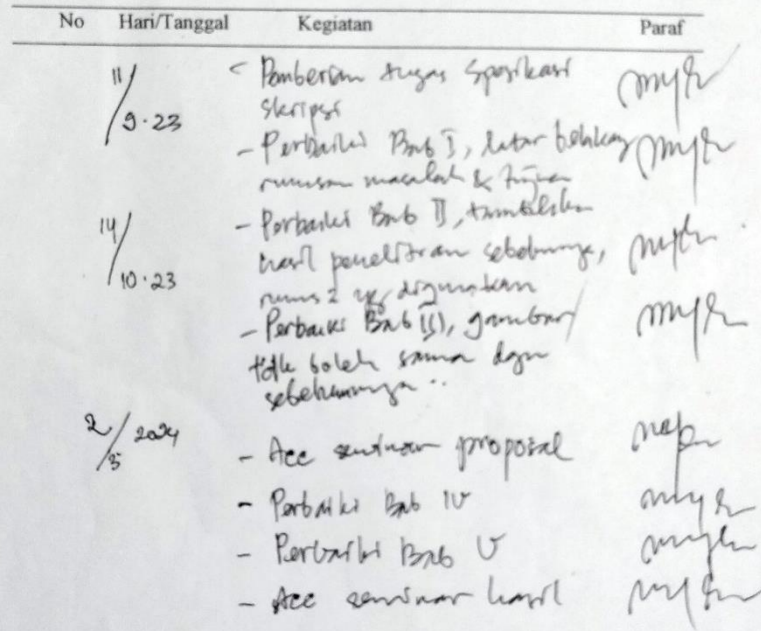 No Hari/Tanggal Kegiatan Paraf
11/9-23 - Pemberian tugas spesifikasi
skripsi
- Perbaiki Bab I, latar belakang
rumusan masalah & tujuan
14/10-23 - Perbaiki Bab II, tambahkan
hasil penelitian sebelumnya,
rumus2 yg digunakan
- Perbaiki Bab III, gambar
tdk boleh sama dgn
sebelumnya
2/5 2024 - Acc seminar proposal
- Perbaiki Bab IV
- Perbaiki Bab V
- Acc seminar hasil